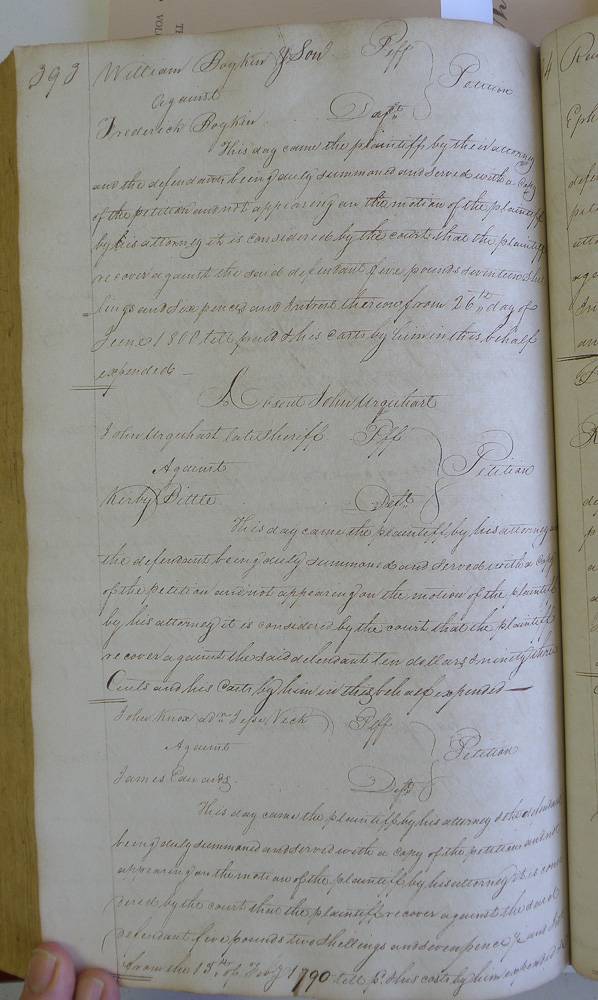 393
William Boykin & Son Plff
Against Petition
Frederick Boykin Deft
This day came the plaintiff by their attorney
and the defendant being duly summoned and served with a Copy
of the petition and not appearing on the motion of the plaintiff
by his attorney it is considered by the courts that the plaintiff
recover against the said defendant five pounds seventeen Shil
lings and six pence and Intrest thereon from 26th day of
June 1800 till paid & his costs by him in this behalf
expended
Absent John Urquhart
John Urquhart late Sheriff Plff
Against Petition
Kerby Bittle Deft
This day came the plaintiff by his attorney and
the defendant being duly summoned and served with a Copy
of the petition and not appearing on the motion of the plaintiff
by his attorney it is considered by the court that the plaintiff
recover against the said defendant ten dollars & ninety three
Cents and his Costs by him in this behalf expended
John Knox adm Jesse Vick Plff
Against Petition
James Edwards Deft
This day came the plaintiff by his attorney & the defendant
being duly summoned and served with a copy of the petition and not
appearing on the motion of the plaintiff by his attorney it is consi
dered by the court that the plaintiff recover against the said
defendant five pounds two shillings and seven pence and Int
from the 13th of 1790 till pd & his costs by him expended